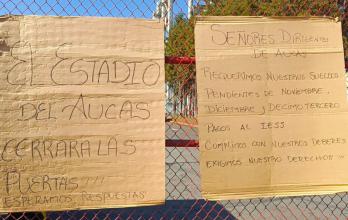 EL ESTADIO
DEL AUCAS
CERRARA LAS
PUERTAS!!!
ESPERAMOS RESPUESTAS
SEÑORES DIRIGENTES
DE AUCAS
REQUERIMOS NUESTROS SUELDOS
PENDIENTES DE NOVIEMBRE,
DICIEMBRE y DECIMO TERCERO
PAGOS AL IESS
CUMPLIMOS CON NUESTROS DEBERES
EXIGIMOS NUESTRO DERECHO!!!